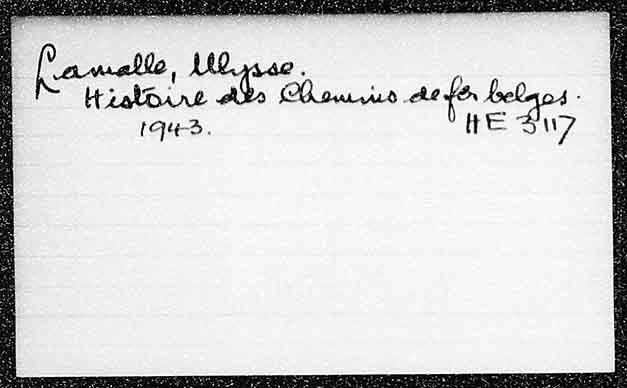 Lamalle, Ulysse.
Histoire des Chemins de fer belges.
1943. HE 3117